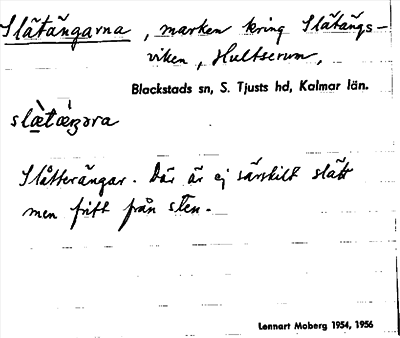 Slätängarna, marken kring Slätängs-
viken, Hultserum,
Blackstads sn, S. Tjusts hd, Kalmar län.
Slåtterängar. Där är ej särskilt slätt
men fritt från sten.
Lennart Moberg 1954, 1956